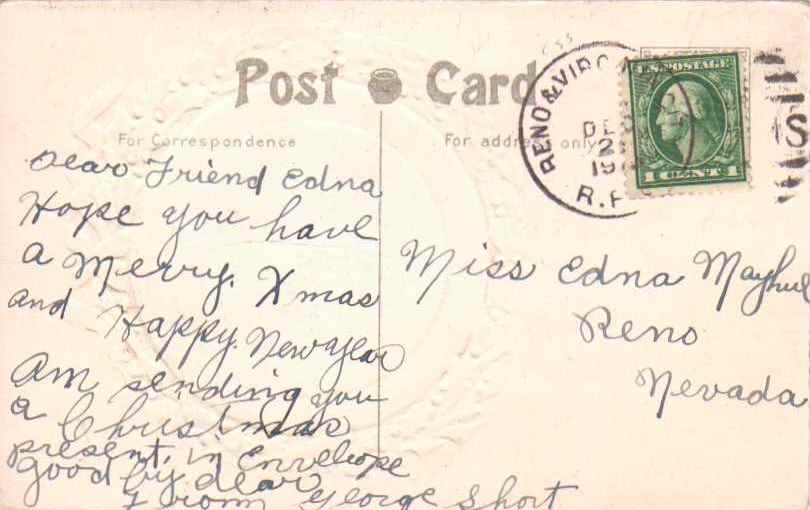 Post Card
For Correspondence
For address only
RENO & VIRG
DE
2
19
R.P.
U.S. POSTAGE
1 CENT 1
S
Dear Friend Edna
Hope you have
a Merry Xmas
and Happy New Year
Am sending you
a Christmas
present in Envelope
good by dear
From George Short
Miss Edna Mayhul
Reno
Nevada